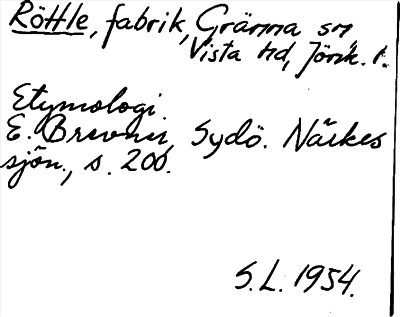 Röttle, fabrik, Gränna sn,
Vista hd, Jönk. l.
Etymologi.
E. Brevner, Sydö. Närkes
sjön., s. 200.
S.L. 1954.